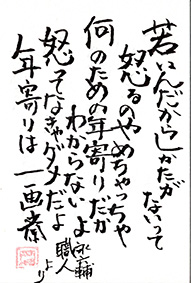 若いんだからしかたが
ないって
怒るのやめちゃっちゃ
何のための年寄りだか
わからないよ
怒ってなきゃダメだよ
年寄りは
永六輔
職人
より